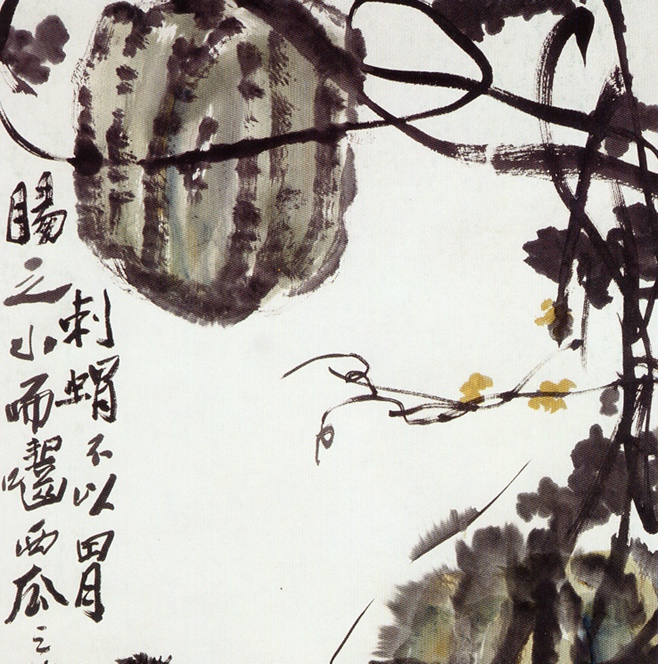 刺蝟不以胃
腸之小而囓西瓜之